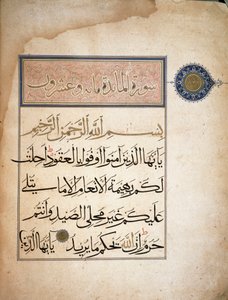 سورة المائدة مائة وعشرون
بسم الله الرحمن الرحيم
يا يها الذين آمنوا اوفوا بالعقود احلت
لكم بهيمة الأنعام إلا ما يتلى
عليكم غير محلي الصيد وأنتم
حرم إن الله يحكم ما يريد يا يها الذين